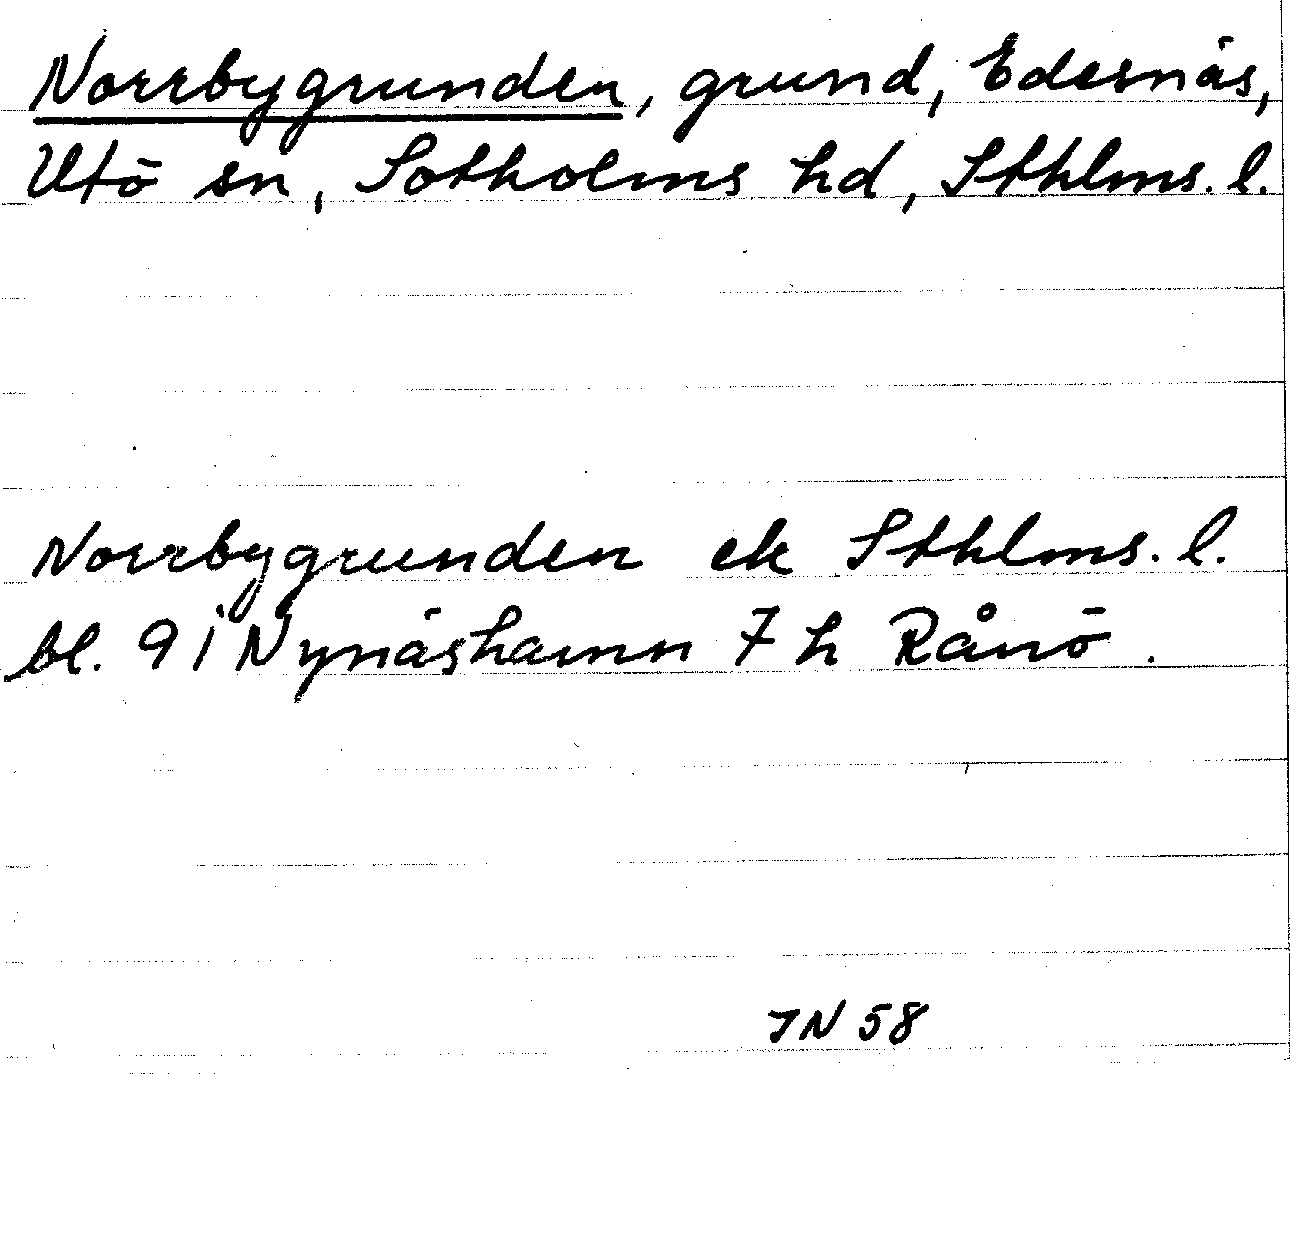 Norrbygrunden, grund, Edesnäs,
Utö sn, Sotholms hd, Sthlms. l.
Norrbygrunden ek Sthlms. l.
bl. 91 Nynäshamn 7 h Rånö.
JN 58